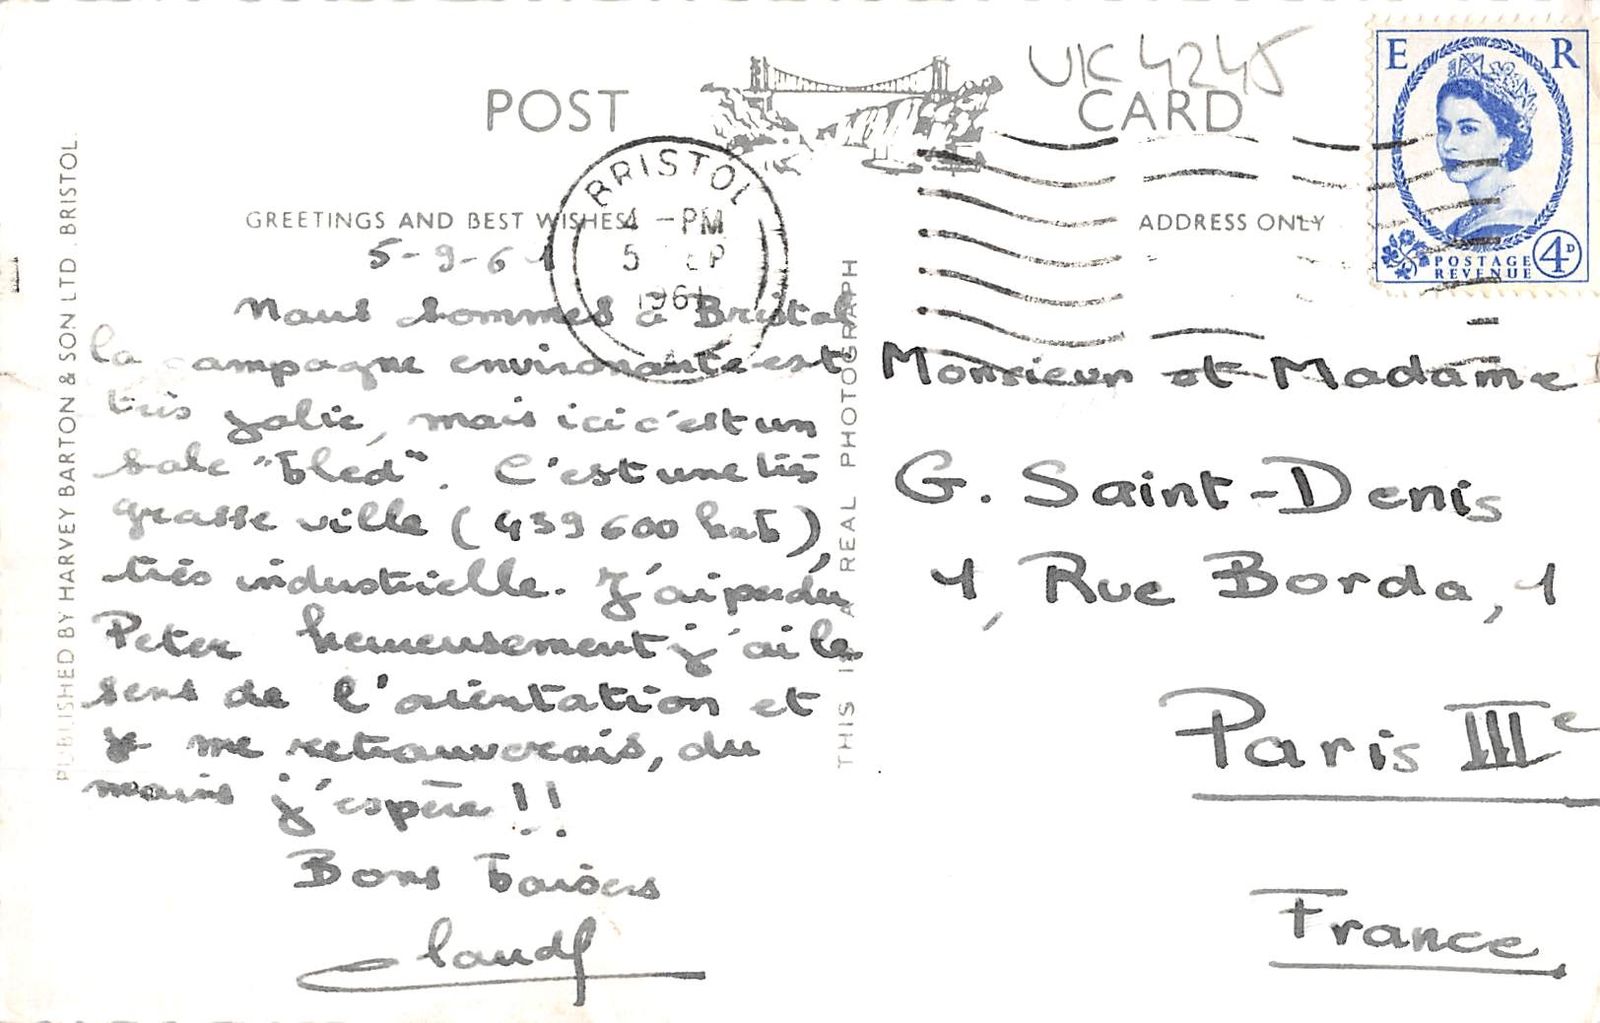 UK 4245
POST CARD
BRISTOL
4 - PM
5 SEP
1961
E R
POSTAGE
REVENUE
4D
GREETINGS AND BEST WISHES
ADDRESS ONLY
5-9-61
Nous sommes à Bristol
la campagne environante est
très jolie, mais ici c'est un
sale "bled". C'est une très
grosse ville (439600 hab),
très industrielle. J'ai perdu
Peter heureusement j'ai le
sens de l'orientation et
je me retrouverais, du
moins j'espère !!
Bons baisers
Claude
Monsieur et Madame
G. Saint-Denis
1, Rue Borda, 1
Paris IIIe
France
PUBLISHED BY HARVEY BARTON & SON LTD. BRISTOL
THIS IS A REAL PHOTOGRAPH